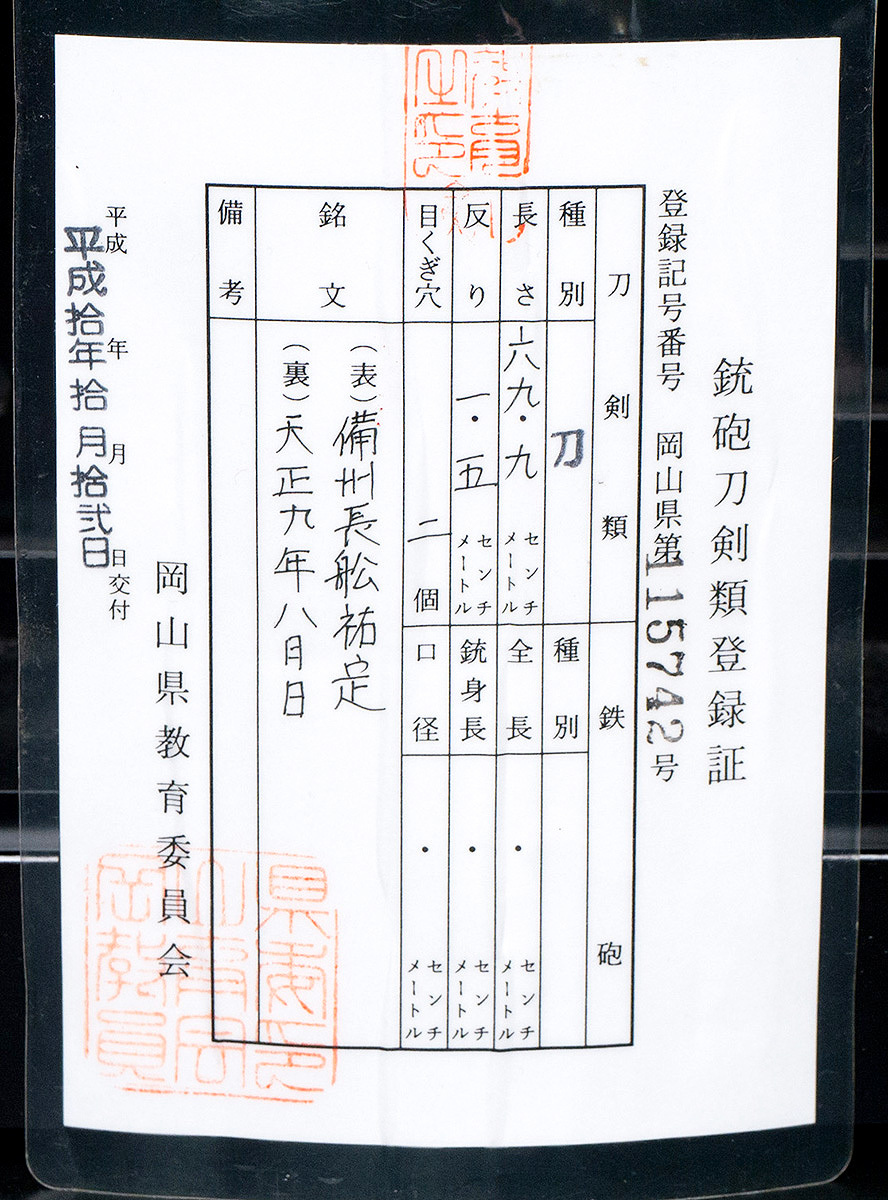 銃砲刀剣類登録証
登録記号番号 岡山県第115742号
刀剣類
鉄砲
種別
刀
種別
長さ
六九・九 センチメートル
全長
・ センチメートル
反り
一・五 センチメートル
銃身長
・ センチメートル
目くぎ穴
二 個
口径
・ センチメートル
銘文
(表)備州長舩祐定
(裏)天正九年八月日
備考
平成 年 月 日交付
平成拾年拾月拾弐日
岡山県教育委員会